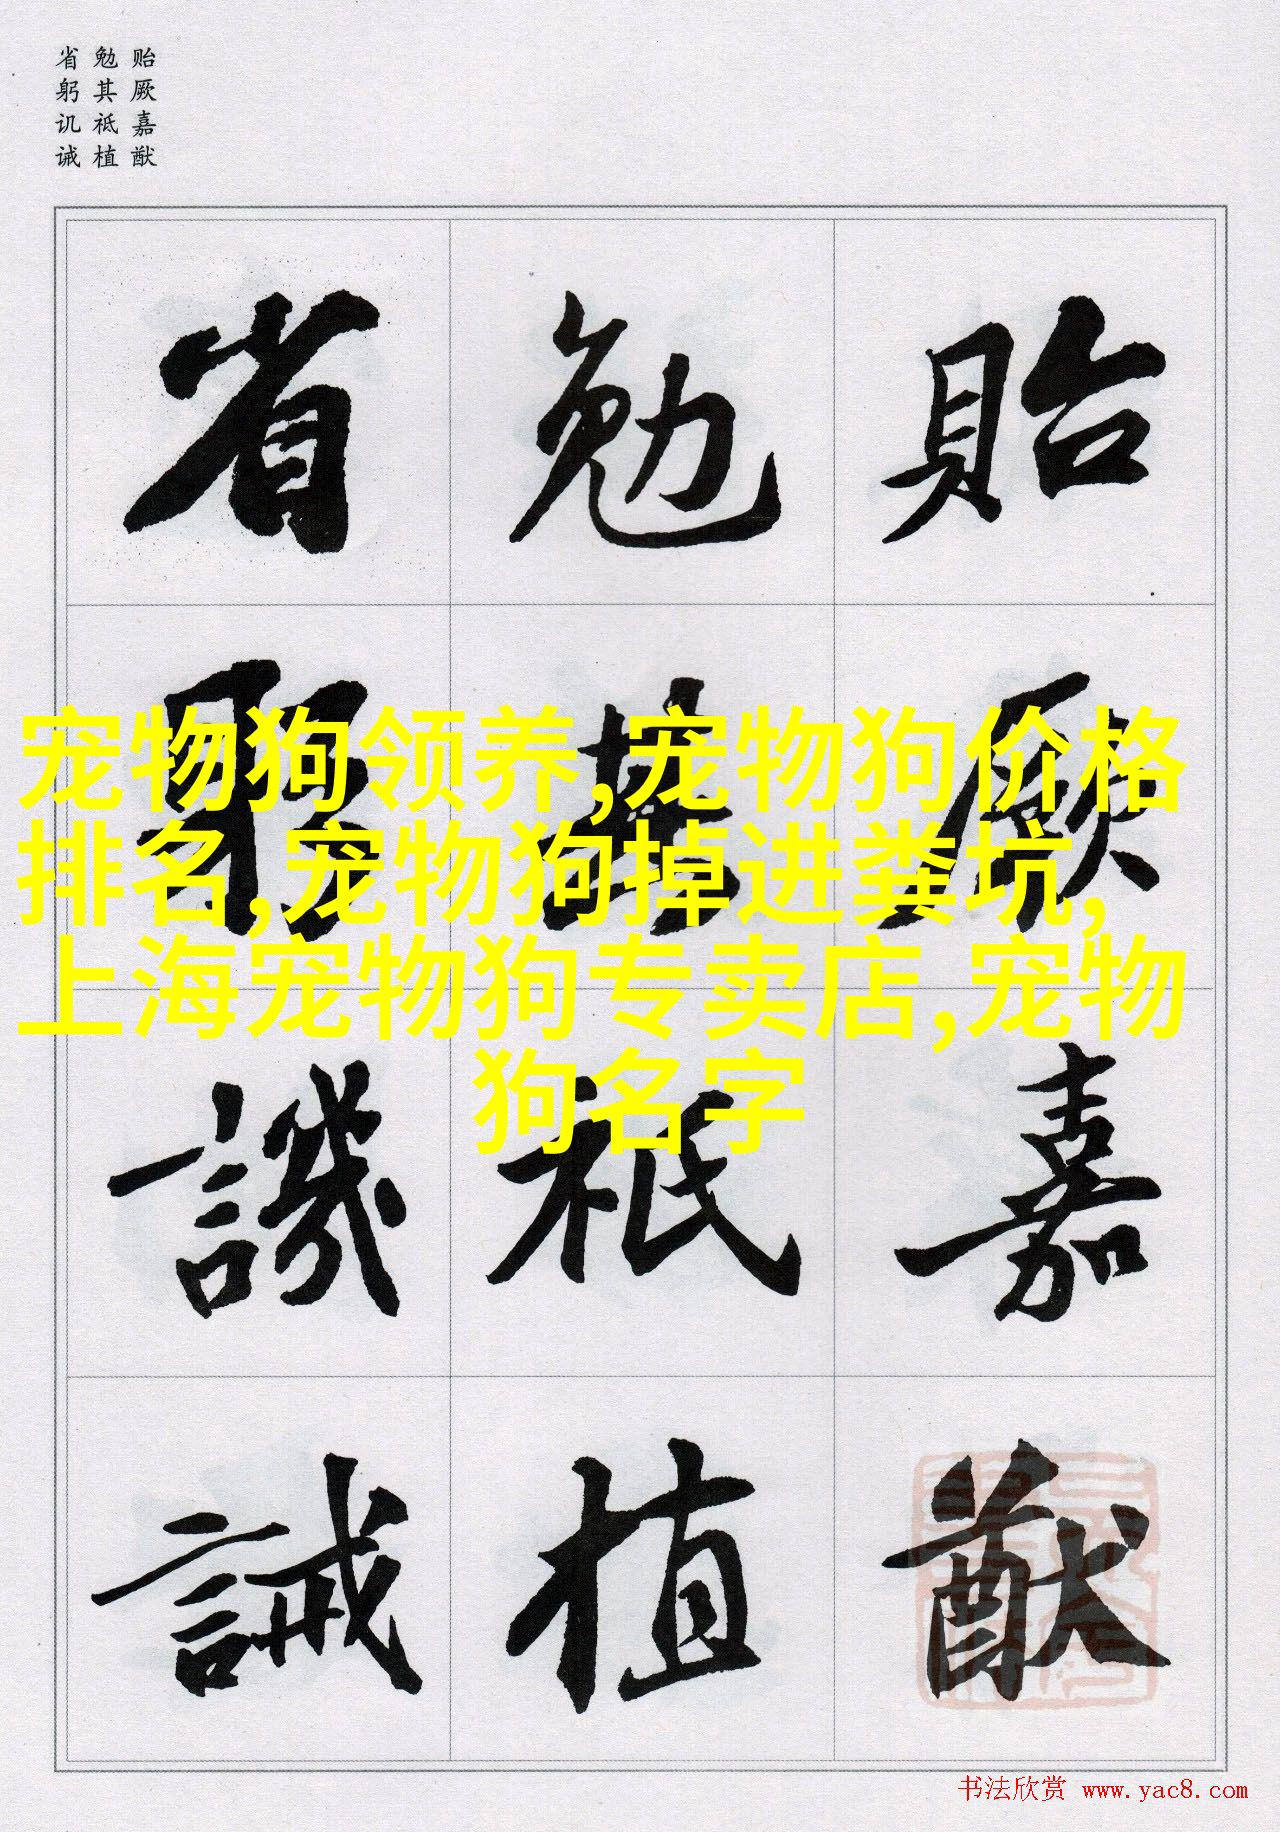 贻厥嘉猷
勉其祗植
省躬讥诫
貽厥嘉猷
勉其祗植
省躬譏誡
宠物狗领养,宠物狗价格
排名,宠物狗掉进粪坑,
上海宠物狗专卖店,宠物
狗名字
书法欣赏 www.yac8.com